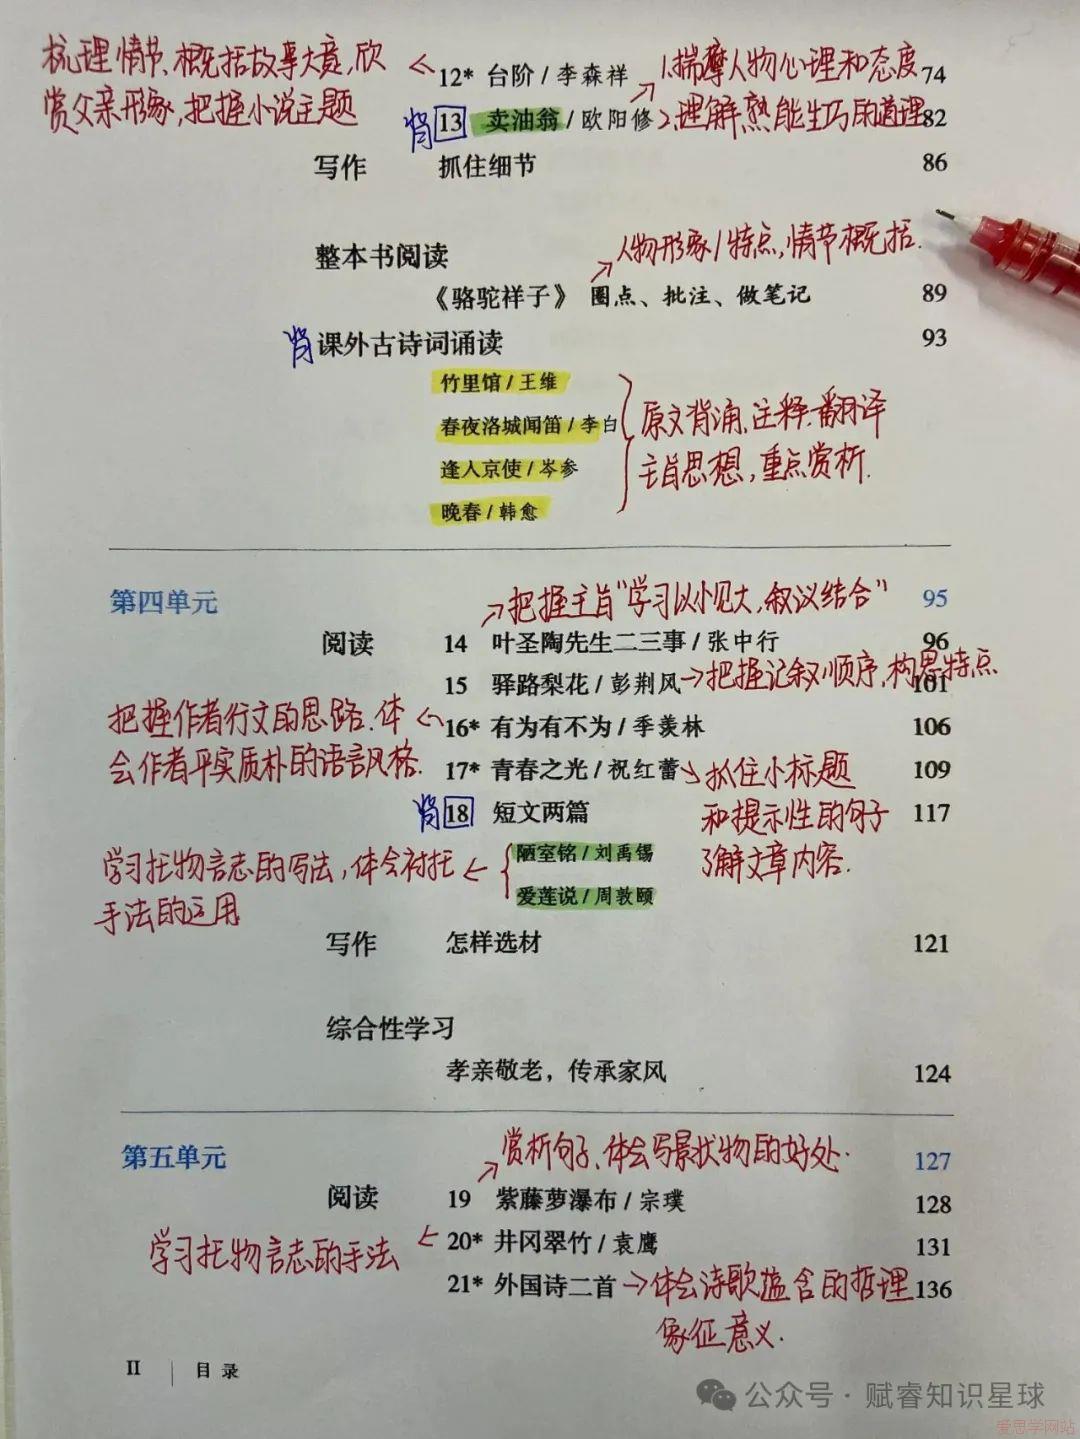 梳理情节、概括故事大意,欣
赏父亲形象,把握小说主题
12* 台阶 / 李森祥
1.揣摩人物心理和态度
74
背 13 卖油翁 / 欧阳修
2.理解熟能生巧的道理
82
写作 抓住细节 86
人物形象/特点,情节概括.
整本书阅读
《骆驼祥子》 圈点、批注、做笔记 89
背 课外古诗词诵读 93
竹里馆 / 王维
春夜洛城闻笛 / 李白
逢入京使 / 岑参
晚春 / 韩愈
原文背诵、注释、翻译
主旨思想,重点赏析.
第四单元 95
把握主旨"学习以小见大,叙议结合"
阅读 14 叶圣陶先生二三事 / 张中行 96
15 驿路梨花 / 彭荆风 101
把握记叙顺序,构思特点
把握作者行文的思路.体
会作者平实质朴的语言风格.
16* 有为有不为 / 季羡林 106
17* 青春之光 / 祝红蕾 109
抓住小标题
和提示性的句子
了解文章内容.
背 18 短文两篇 117
陋室铭 / 刘禹锡
爱莲说 / 周敦颐
学习托物言志的写法,体会衬托
手法的运用
写作 怎样选材 121
综合性学习
孝亲敬老，传承家风 124
第五单元 127
赏析句子、体会写景状物的好处.
阅读 19 紫藤萝瀑布 / 宗璞 128
学习托物言志的手法
20* 井冈翠竹 / 袁鹰 131
21* 外国诗二首 136
体会诗歌蕴含的哲理
象征意义.
II 目录
公众号 · 赋睿知识星球
爱思学网站